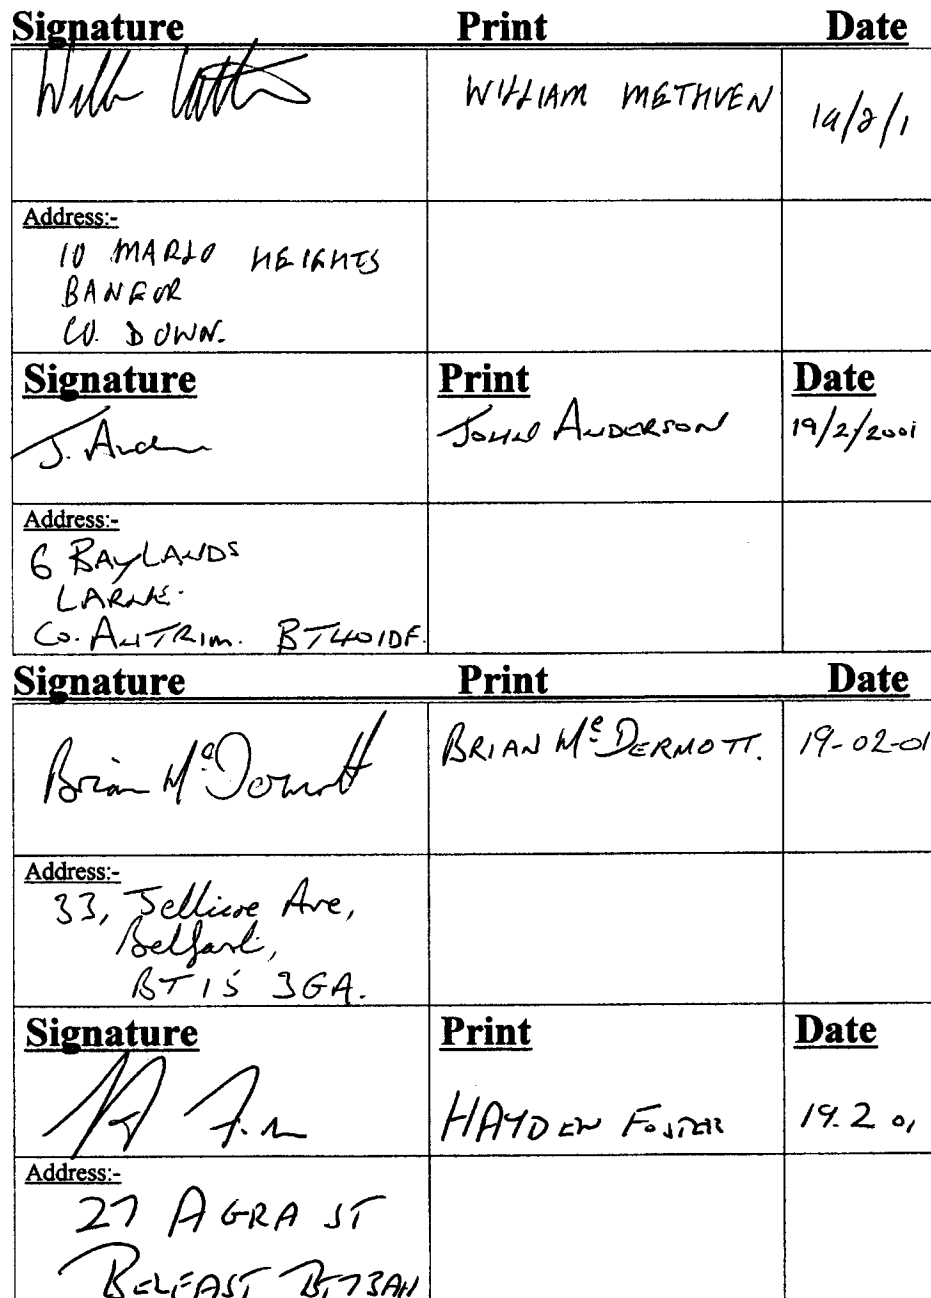 Signature Print Date
WILLIAM METHVEN 19/2/1
Address:-
10 MARLO HEIGHTS
BANGOR
CO. DOWN.
Signature Print Date
J. Anderson JOHN ANDERSON 19/2/2001
Address:-
6 BAYLANDS
LARNE.
Co. ANTRIM. BT401DF.
Signature Print Date
Brian McDermott BRIAN McDERMOTT. 19-02-01
Address:-
33, Jellicoe Ave,
Belfast,
BT15 3GA.
Signature Print Date
HAYDEN FOSTER 19.2 01
Address:-
27 AGRA ST
BELFAST BT73AH